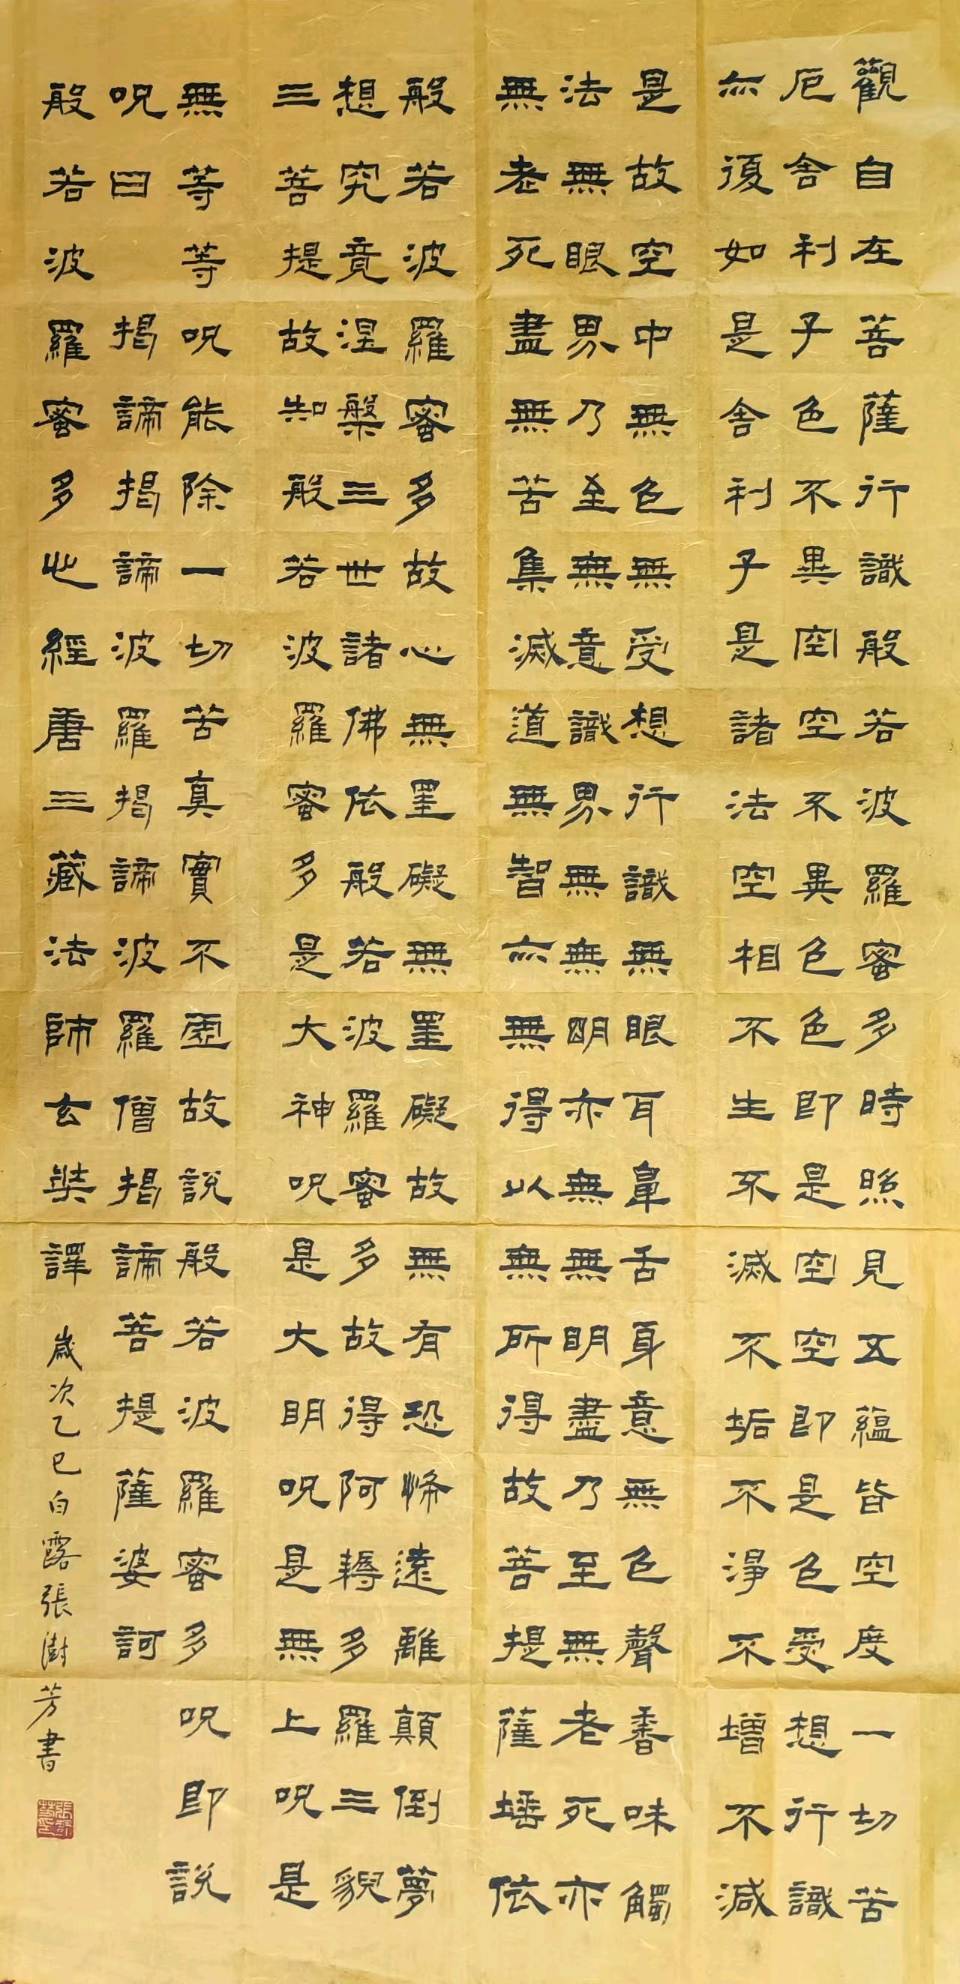 觀自在菩薩行識般若波羅蜜多時照見五蘊皆空度一切苦
厄舍利子色不異空空不異色色即是空空即是色受想行識
亦復如是舍利子是諸法空相不生不滅不垢不淨不增不減
是故空中無色無受想行識無眼耳鼻舌身意無色聲香味觸
法無眼界乃至無意識界無無明亦無無明盡乃至無老死亦
無老死盡無苦集滅道無智亦無得以無所得故菩提薩埵依
般若波羅蜜多故心無罣礙無罣礙故無有恐怖遠離顛倒夢
想究竟涅槃三世諸佛依般若波羅蜜多故得阿耨多羅三貌
三菩提故知般若波羅蜜多是大神呪是大明呪是無上呪是
無等等呪能除一切苦真實不虛故說般若波羅蜜多呪即說
呪曰 揭諦揭諦波羅揭諦波羅僧揭諦菩提薩婆訶
般若波羅蜜多心經唐三藏法師玄奘譯 歲次乙巳白露張澍芳書